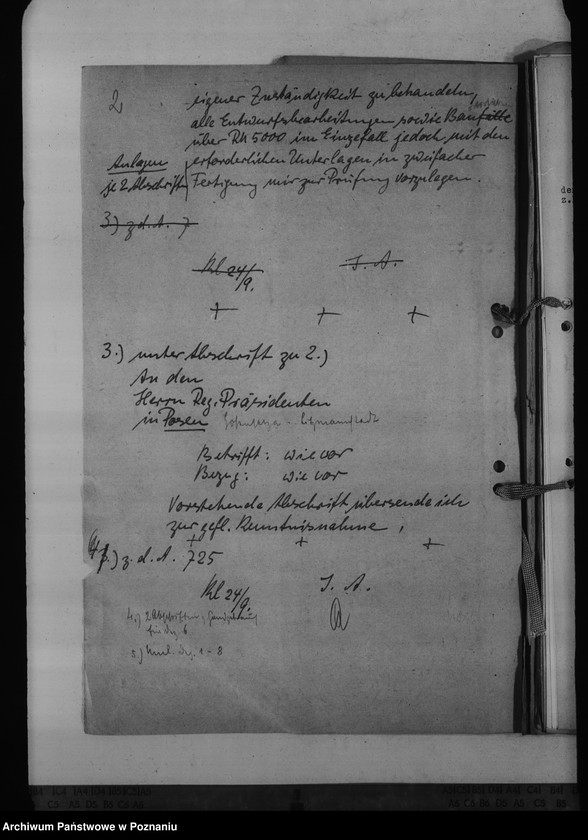 2
eigener Zuständigkeit zu behandeln,
alle Entwurfsbearbeitungen sowie Bau
über RM 5000 im Einzelfall jedoch mit den
Anlagen
erforderlichen Unterlagen in zweifacher
je 2 Abschrift
Fertigung mir zur Prüfung vorzulegen.
3) z.d.A. 7
Kl 24/9.
I. A.
3.) unter Abschrift zu 2.)
An den
Herrn Reg. Präsidenten
in Posen Hohensalza - Litzmannstadt
Betrifft: wie vor
Bezug: wie vor
Vorstehende Abschrift übersende ich
zur gefl. Kenntnisnahme.
4.) z.d.A. 725
Kl 24/9.
I. A.
4.) 2 Abschriften
5) 1 - 8
Archiwum Państwowe w Poznaniu